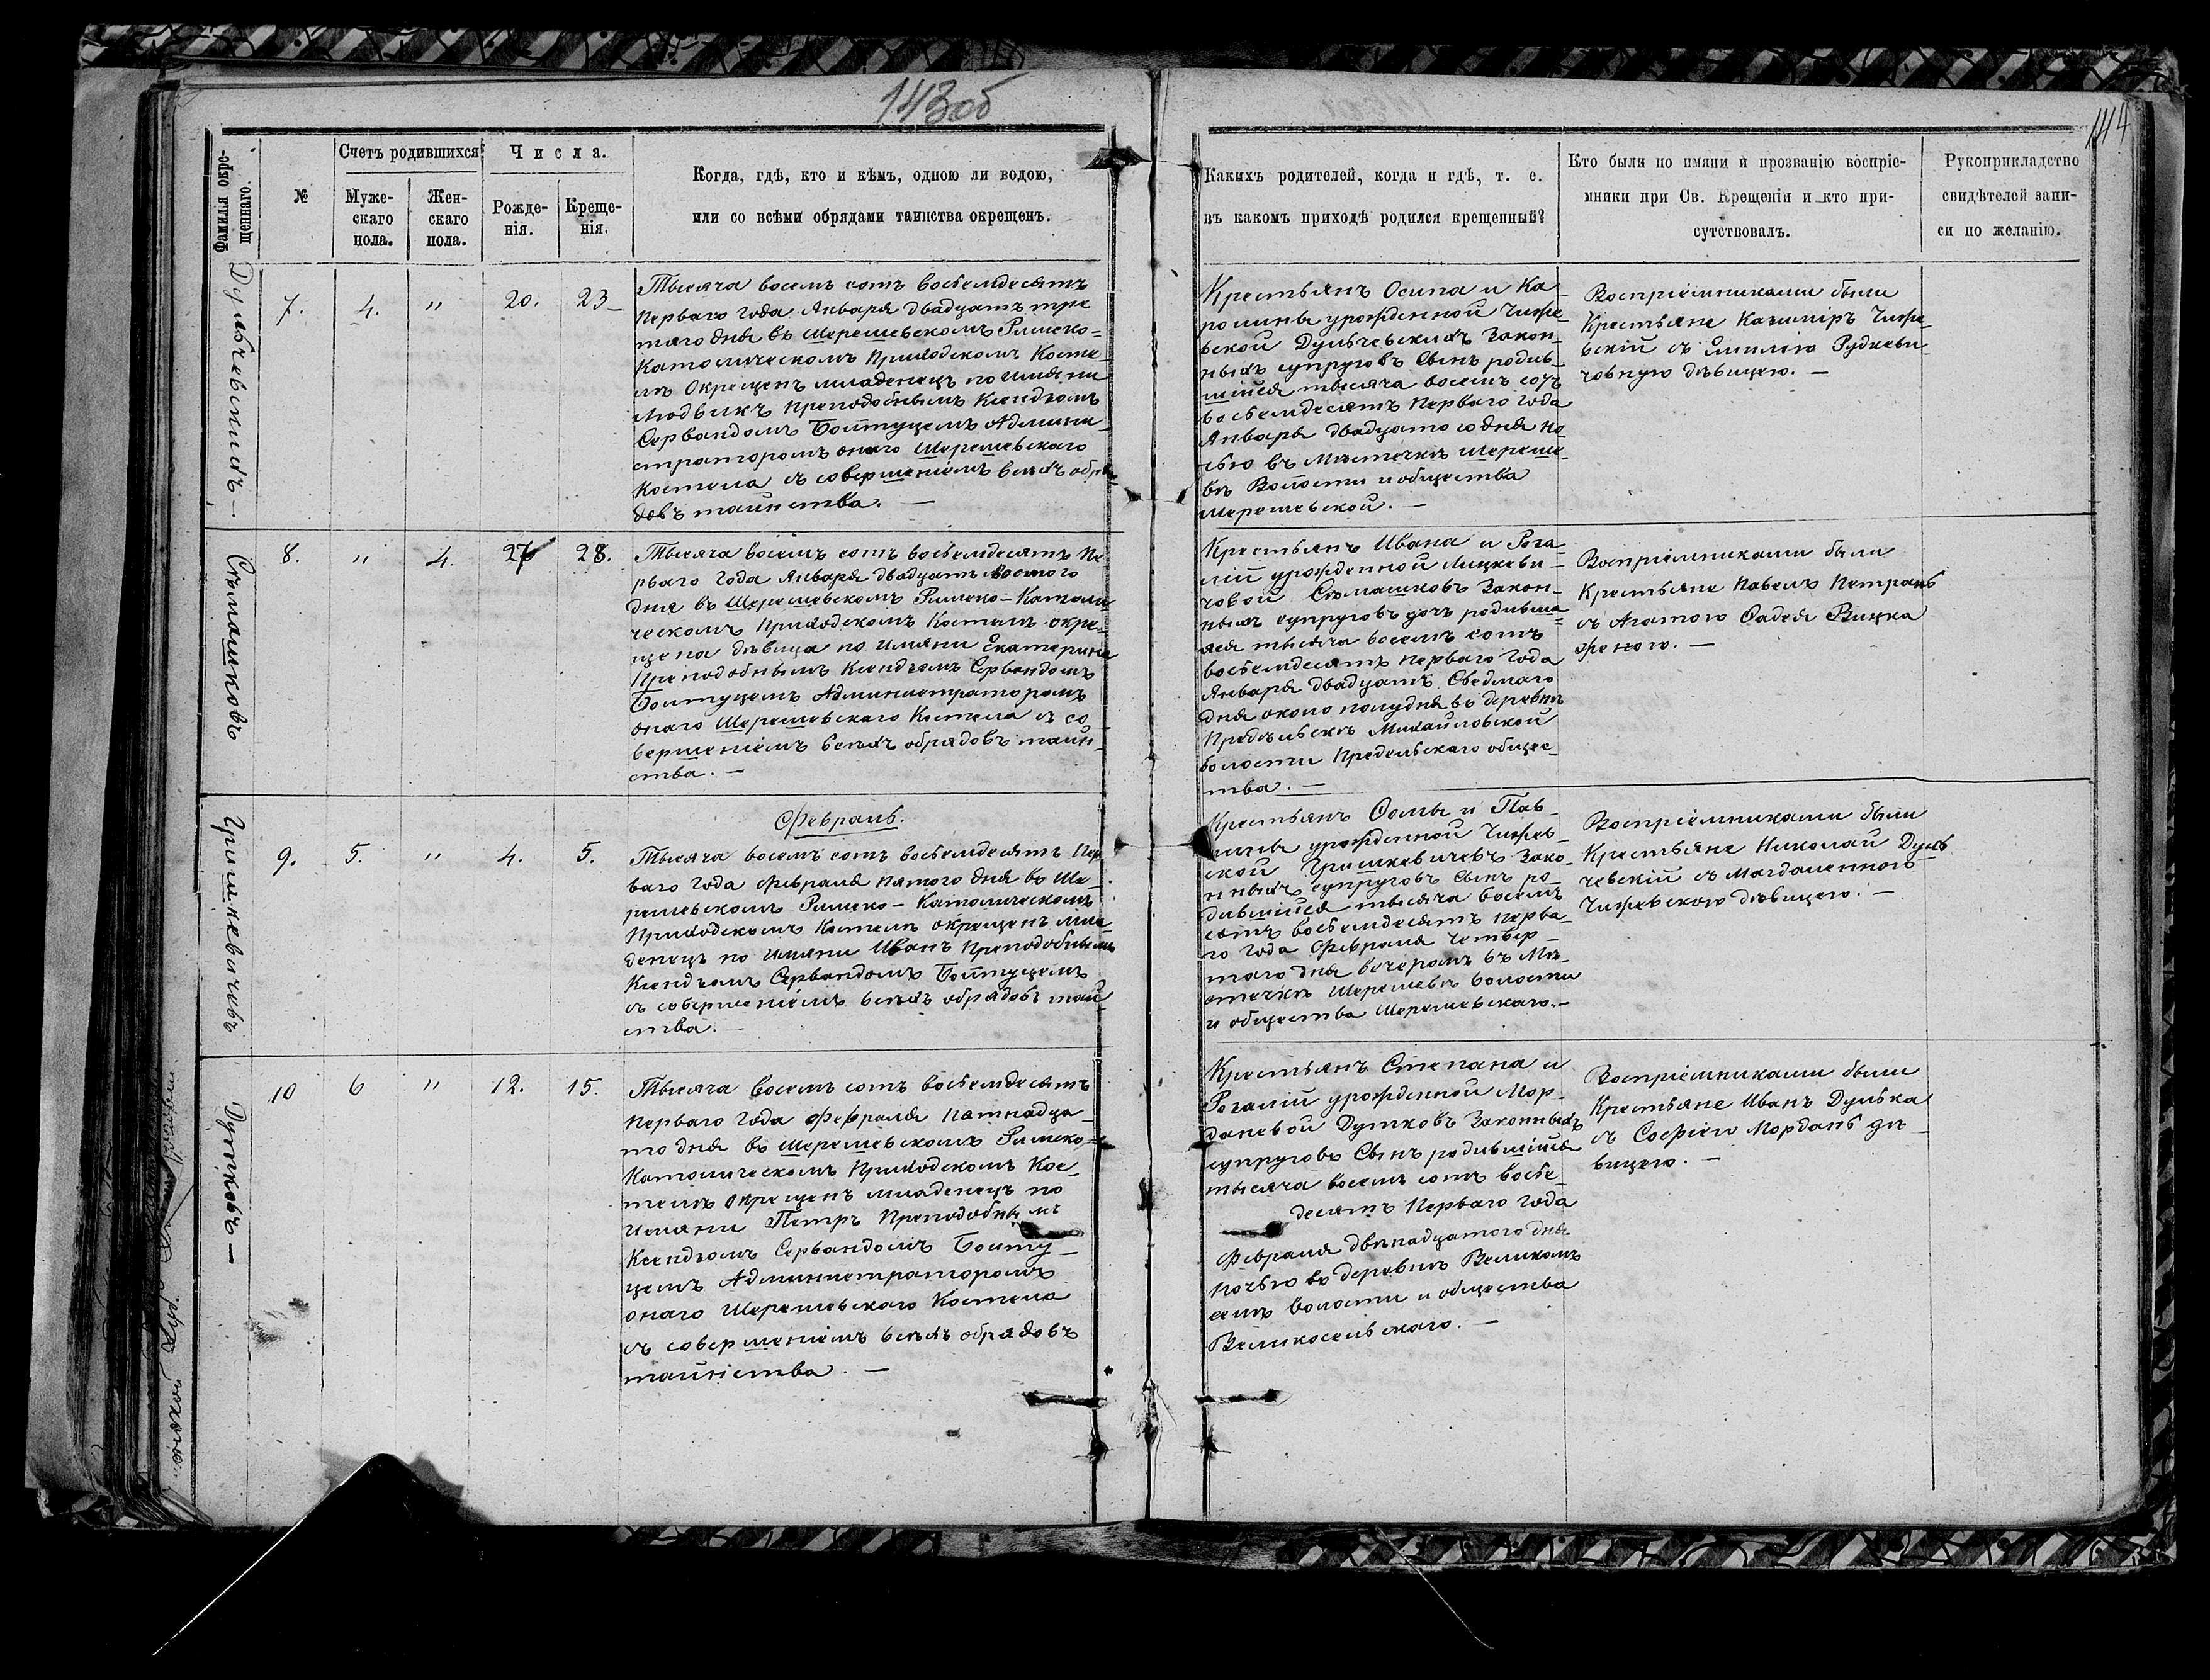 143об
144
Фамилія окре-
щеннаго.
№
Счетъ родившихся
Муже-
скаго
пола.
Жен-
скаго
пола.
Числа.
Рожде-
нія.
Креще-
нія.
Когда, гдѣ, кто и кѣмъ, одною ли водою,
или со всѣми обрядами таинства окрещенъ.
Какихъ родителей, когда и гдѣ, т. е.
въ какомъ приходѣ родился крещенный?
Кто были по имяни и прозванію воспріе-
мники при Св. Крещеніи и кто при-
сутствовалъ.
Рукоприкладство
свидѣтелей запи-
си по желанію.
Дульчевскихъ
7.
4.
"
20.
23
Тысяча восемъ сотъ восьемдесятъ
Перваго года Января двадцать тре
тяго дня въ Шерешевскомъ Римско=
Католическомъ Приходскомъ Косте
лѣ Окрещенъ младенецъ по имяни
Людвикъ Преподобнымъ Ксендзомъ
Сервандомъ Болтуцемъ Админи
страторомъ онаго Шерешевскаго
Костела съ совершеніемъ всѣхъ обря
довъ таинства. —
Крестьянъ Осипа и Ка
ролины урожденной Чиже
вской Дульчевскихъ Закон
ныхъ супруговъ Сынъ родив
шійся тысяча восемъ сотъ
восьемдесятъ Перваго года
Января двадцатого дня но
чью въ Мѣстечкѣ Шереше
вѣ Волости и общества
Шерешевской. —
Воспріемниками были
Крестьяне Казиміръ Чиже
вскій съ Эмилію Рудкеви
човную дѣвицею. —
Сѣмашковъ
8.
"
4.
27
28.
Тысяча восемъ сотъ восьемдесятъ Пе
рваго года Января двадцать Восмого
дня въ Шерешевскомъ Римско-Католи
ческомъ Приходскомъ Костелѣ окре
щена дѣвица по имяни Екатерина
Преподобнымъ Ксендзомъ Сервандомъ
Болтуцемъ Администраторомъ
онаго Шерешевскаго Костела съ со
вершеніемъ всѣхъ обрядовъ таин
ства. —
Крестьянъ Ивана и Роза
лій урожденной Лицкеви
човой Сѣмашковъ Закон
ныхъ супруговъ дочь родивша
яся тысяча восемъ сотъ
восьемдесятъ перваго года
Января двадцать Сѣдмаго
дня около полудня въ деревнѣ
Предѣльскѣ Михайловской
волости Предельскаго общес
тва. —
Воспріемниками были
Крестьяне Павелъ Петрань
съ Агатою Фадея Вицка
женою. —
Гришкевичевъ
Февраль.
9.
5.
"
4.
5.
Тысяча восемъ сотъ восьемдесятъ Пер
ваго года Февраля пятого дня въ Ше
решевскомъ Римско-Католическомъ
Приходскомъ Костелѣ окрещенъ мла
денецъ по имяни Иванъ Преподобнымъ
Ксендзомъ Сервандомъ Болтуцемъ
съ совершеніемъ всѣхъ обрядовъ таин
ства. —
Крестьянъ Фомы и Пав
лины урожденной Чижев
ской Гришкевичевъ Зако
нныхъ супруговъ Сынъ ро
дившійся тысяча восемъ
сотъ восьемдесятъ перва
го года Февраля четвер
таго дня вечеромъ въ Мѣ
стечкѣ Шерешевѣ волости
и общества Шерешевскаго. —
Воспріемниками были
Крестьяне Николай Дуль
чевскій съ Магдаленною
Чижевскою дѣвицею. —
Дутковъ —
10
6
"
12.
15.
Тысяча восемъ сотъ восьемдесятъ
Перваго года Февраля Пятнадца
то дня въ Шерешевскомъ Римско
Католическомъ Приходскомъ Кос
телѣ окрещенъ младенецъ по
имяни Петръ Преподобнымъ
Ксендзомъ Сервандомъ Болту
цемъ Администраторомъ
онаго Шерешевскаго Костела
съ совершеніемъ всѣхъ обрядовъ
таинства. —
Крестьянъ Степана и
Розалій урожденной Мор
даневой Дутковъ Законныхъ
супруговъ Сынъ родившійся
тысяча восемъ сотъ восье
десятъ Перваго года
Февраля двѣнадцатого дня
ночью въ деревнѣ Великомъ
селѣ волости и общества
Великосельскаго. —
Воспріемниками были
Крестьяне Иванъ Дулька
съ Софіею Морданъ дѣ
вицею. —